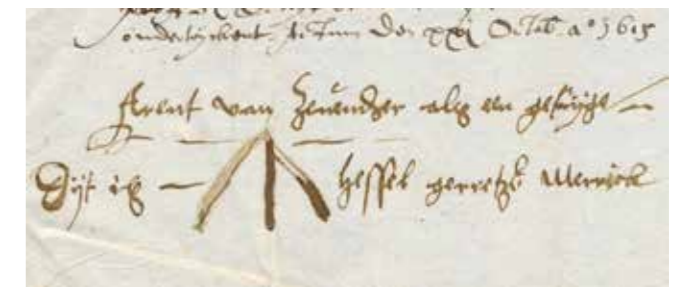 onderteickent Actum den xxj Octob. aº 1615
Arent van Zevender als en getuijge
Dijt is
Hessel gerretzs Merrick